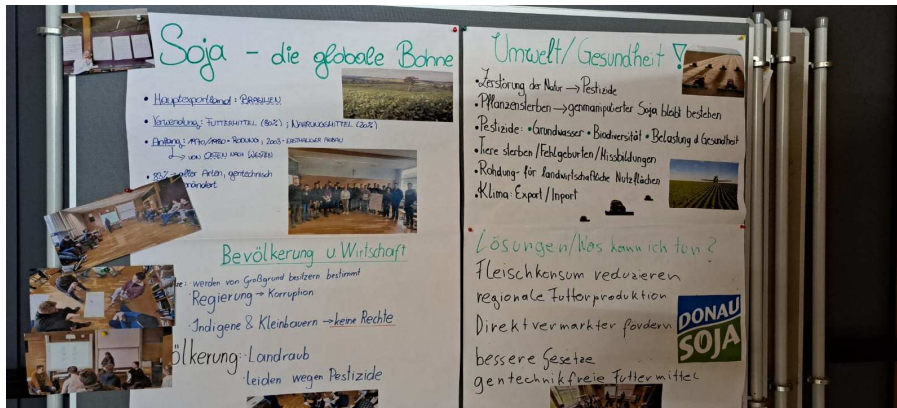 Soja - die globale Bohne
• Hauptexportland: BRASILIEN
• Verwendung: FUTTERMITTEL (80%); NAHRUNGSMITTEL (20%)
• Anfang: 1970/1980 - RODUNG, 2003 -
→ von OSTEN NACH WESTEN
• 83% → aller Arten, gentechnisch
verändert
Bevölkerung u Wirtschaft
werden von Großgrund besitzern bestimmt
Regierung → Korruption
Indigene & Kleinbauern → keine Rechte
ölkerung: Landraub
leiden wegen Pestizide
Umwelt/Gesundheit!
• Zerstörung der Natur → Pestizide
• Pflanzensterben → genmanipulierter Soja bleibt bestehen
• Pestizide: • Grundwasser • Biodiversität • Belastung d Gesundheit
• Tiere sterben/Fehlgeburten/Missbildungen
• Rohdung- für landwirtschafliche Nutzflächen
• Klima: Export/Inport
Lösungen/Was kann ich tun?
Fleischkonsum reduzieren
regionale Futterproduktion
Direktvermarkter fördern
bessere Gesetze
gentechnikfreie Futtermittel
DONAU
SOJA